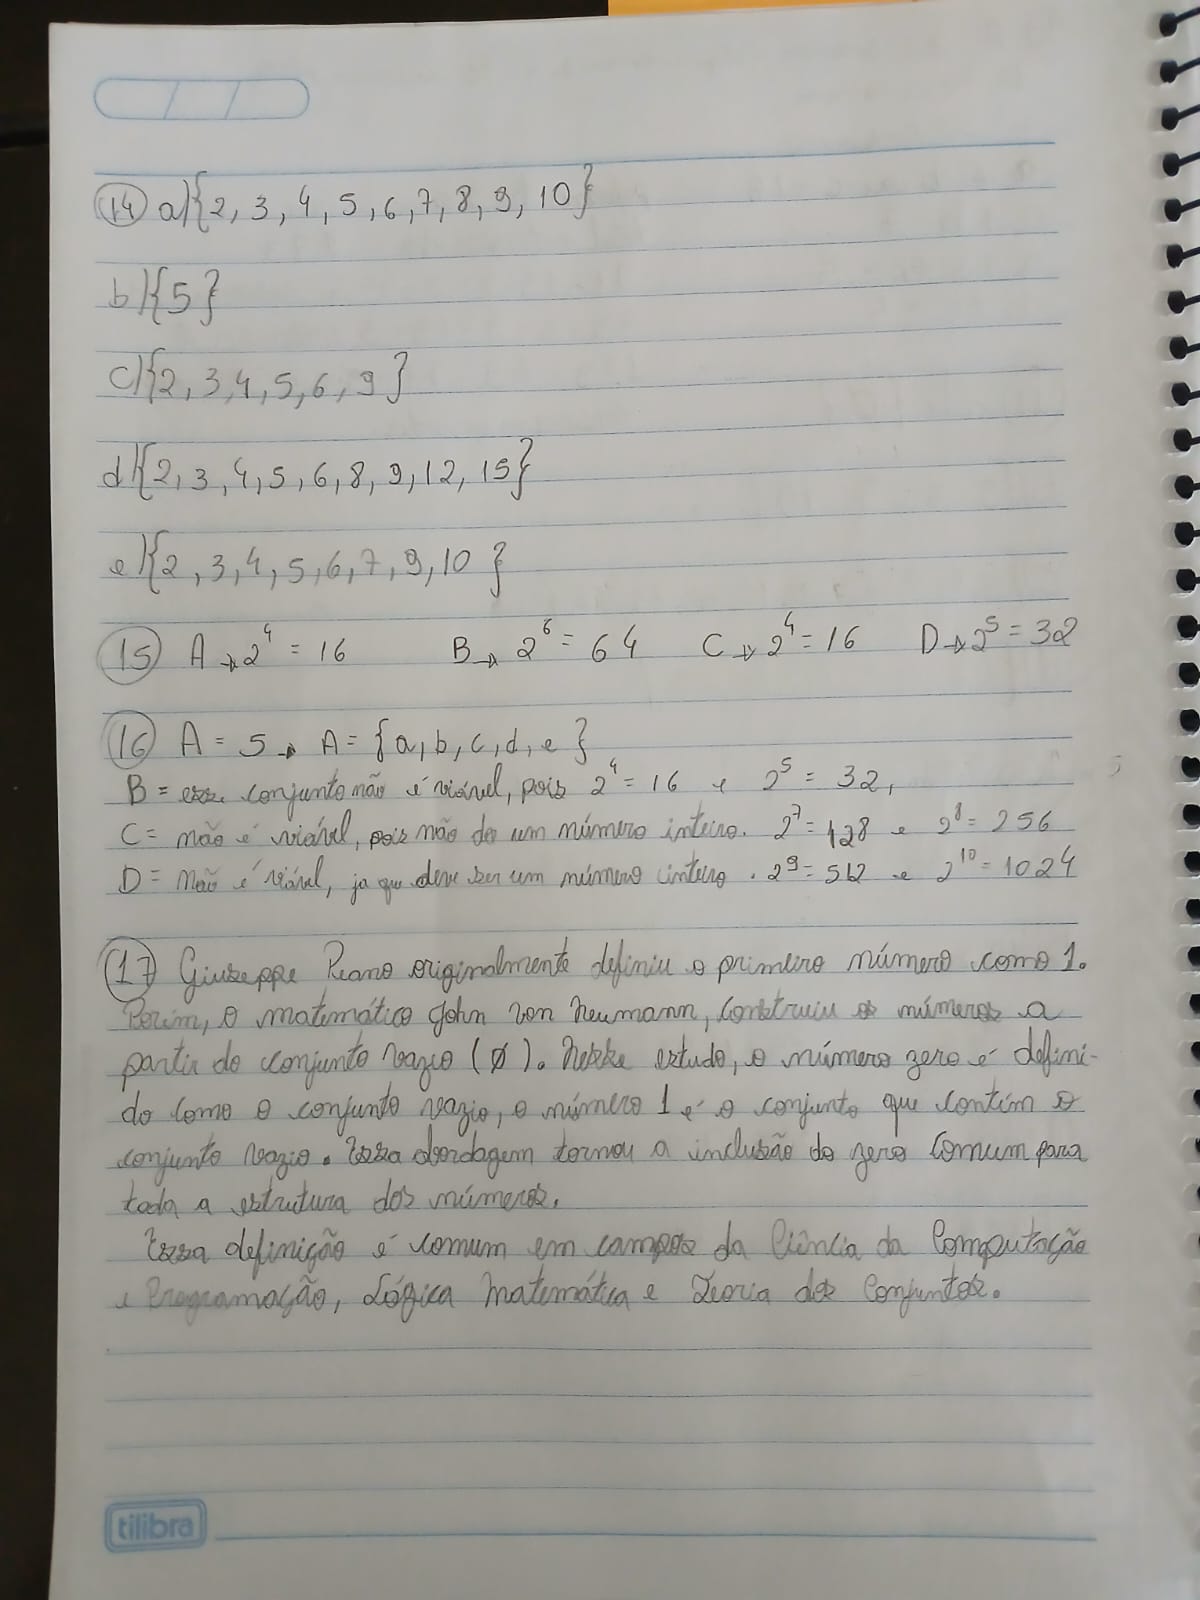 14 a) {2, 3, 4, 5, 6, 7, 8, 9, 10}
b) {5}
c) {2, 3, 4, 5, 6, 9}
d) {2, 3, 4, 5, 6, 8, 9, 12, 15}
e) {2, 3, 4, 5, 6, 7, 9, 10}
15 A → 2⁴ = 16 B → 2⁶ = 64 C → 2⁴ = 16 D → 2⁵ = 32
16 A = 5 → A = {a, b, c, d, e}
B = esse conjunto não é viável, pois 2⁴ = 16 e 2⁵ = 32,
C = não é viável, pois não da um número inteiro. 2⁷ = 128 e 2⁸ = 256
D = não é viável, ja que deve ser um número inteiro. 2⁹ = 512 e 2¹⁰ = 1024
17 Giuseppe Peano originalmente definiu o primeiro número como 1.
Porém, o matemático John von Neumann, construiu os números a
partir do conjunto vazio (Ø). Nesse estudo, o número zero é defini-
do como o conjunto vazio, o número 1 é o conjunto que contém o
conjunto vazio. Essa abordagem tornou a inclusão do zero comum para
toda a estrutura dos números.
Essa definição é comum em campos da Ciência da Computação
e Programação, Lógica Matemática e Teoria dos Conjuntos.
tilibra